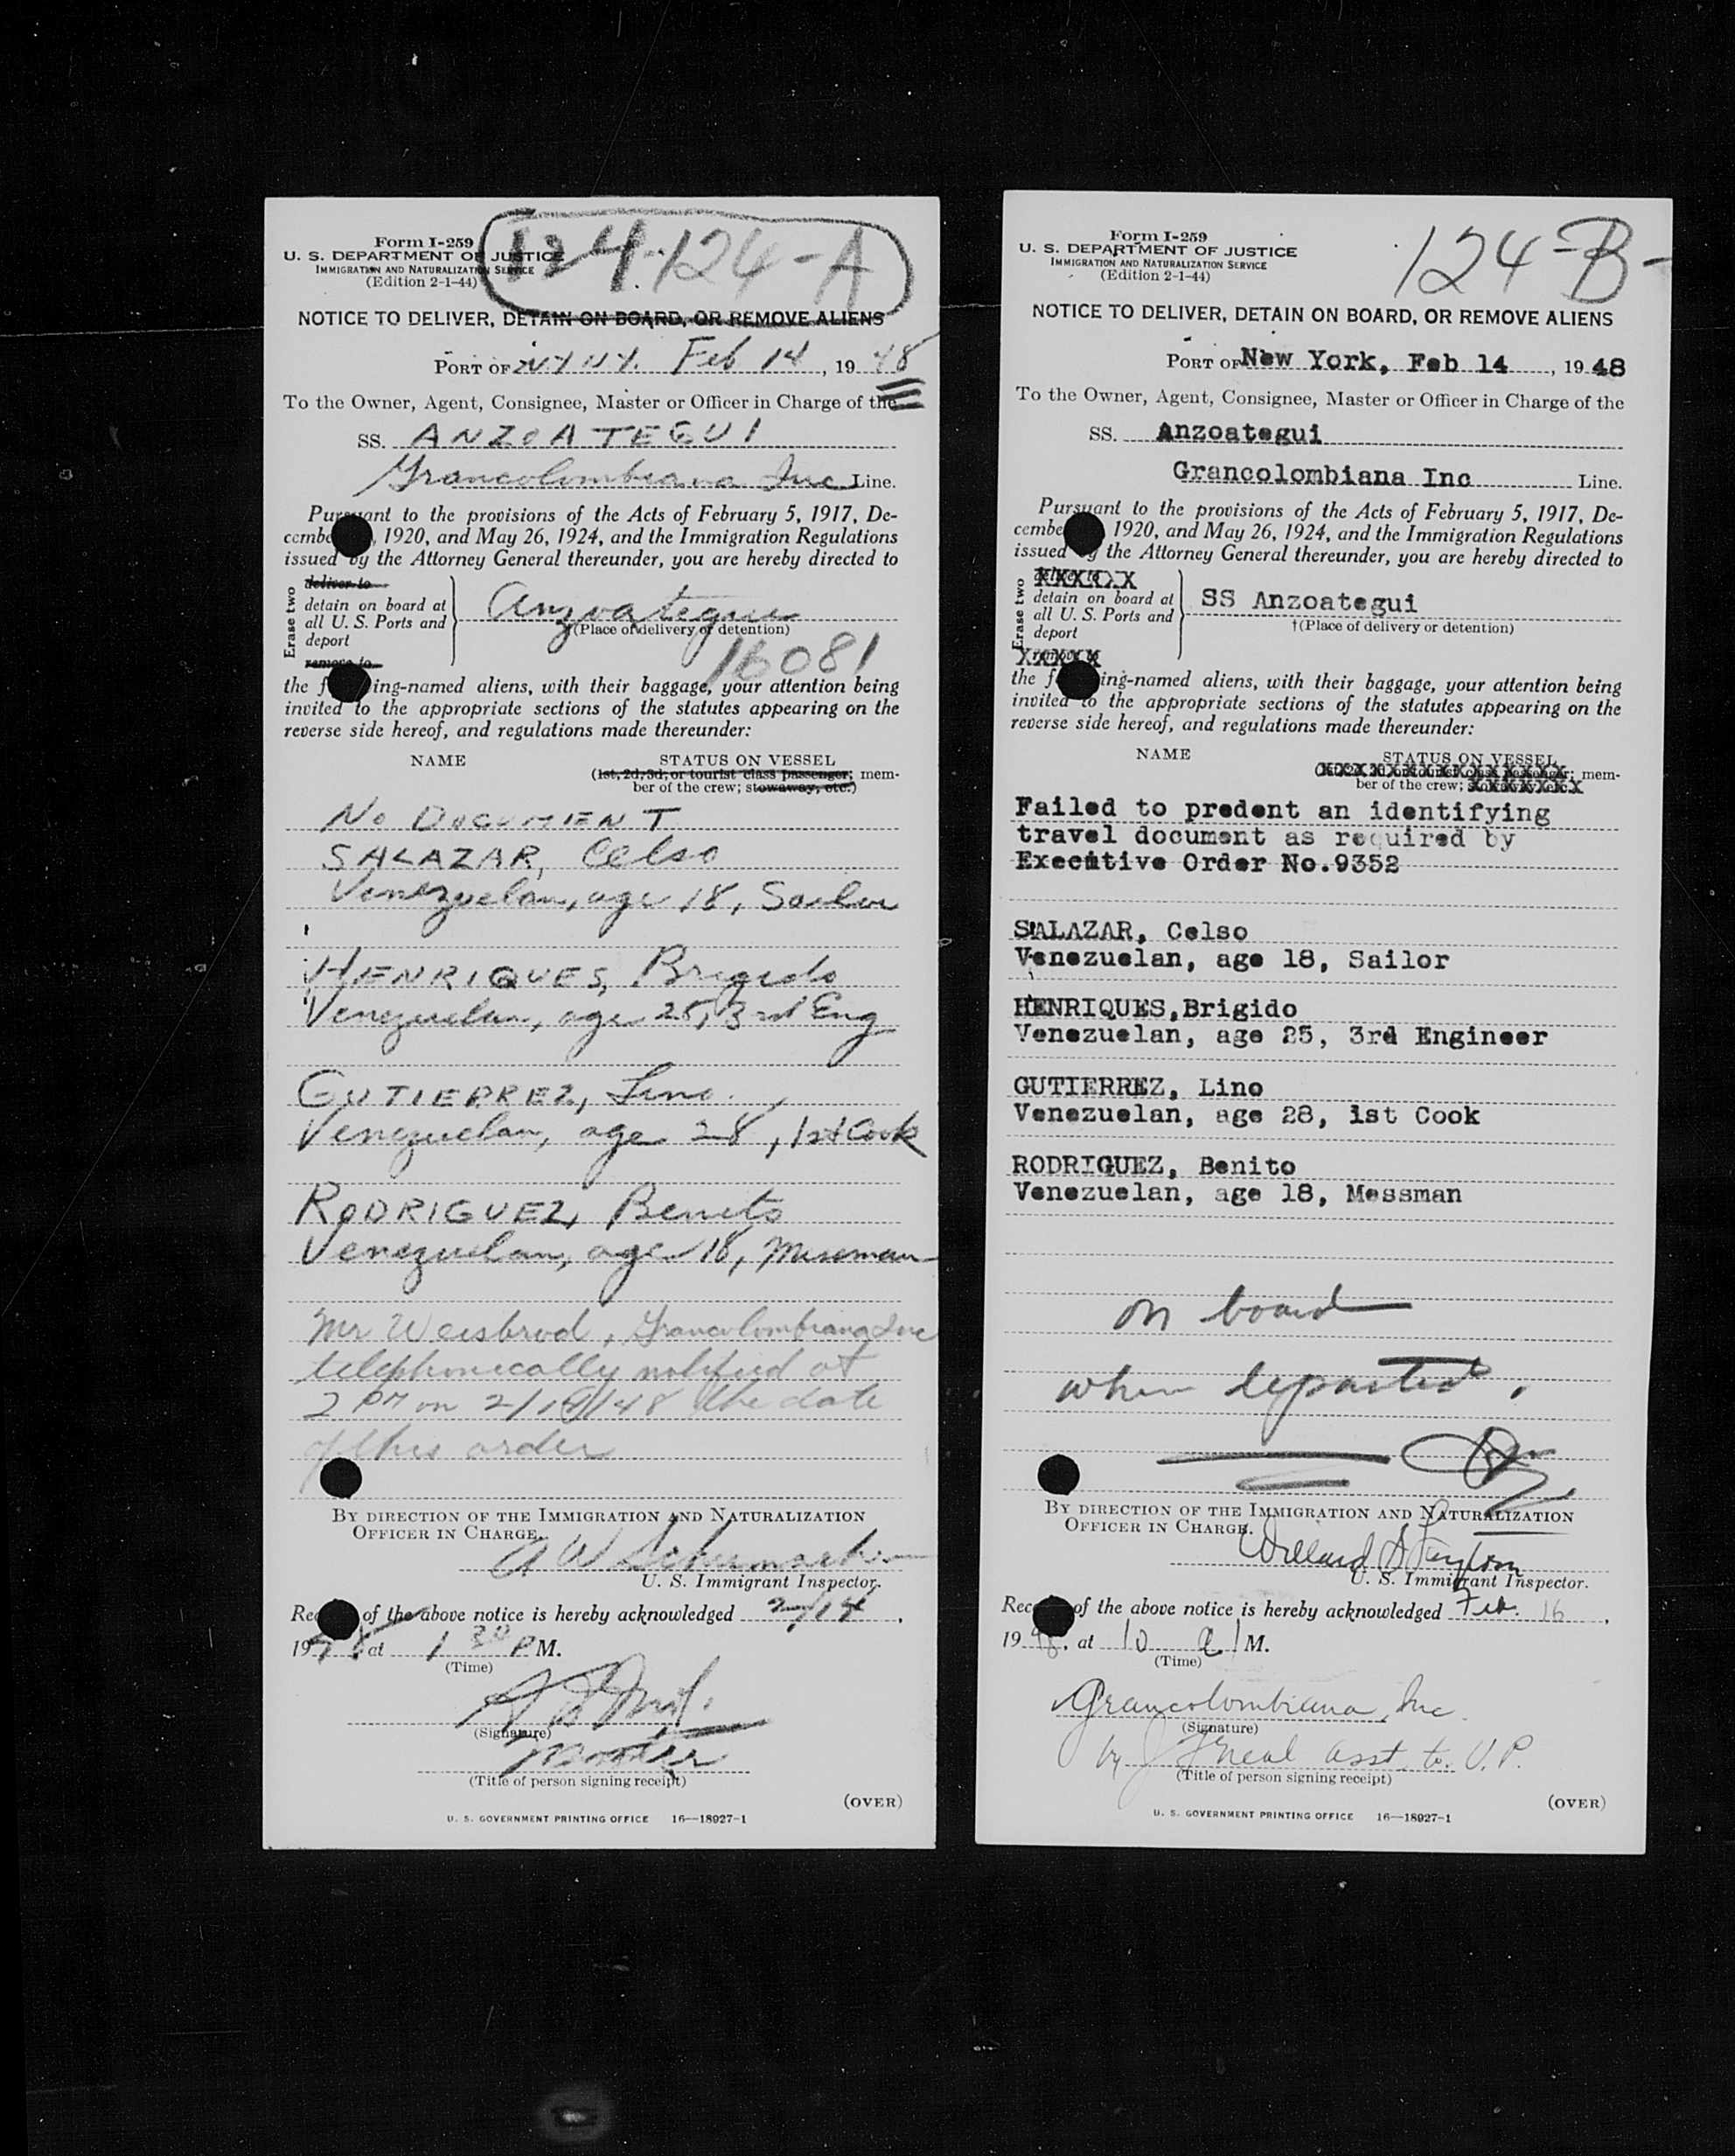 Form I-259
U. S. DEPARTMENT OF JUSTICE
IMMIGRATION AND NATURALIZATION SERVICE
(Edition 2-1-44)
124-124-A
NOTICE TO DELIVER, DETAIN ON BOARD, OR REMOVE ALIENS
PORT OF N.Y. N.Y. Feb 14, 1948
To the Owner, Agent, Consignee, Master or Officer in Charge of the
SS. ANZOATEGUI
Grancolombiana Inc Line.
Pursuant to the provisions of the Acts of February 5, 1917, De-
cembe , 1920, and May 26, 1924, and the Immigration Regulations
issued by the Attorney General thereunder, you are hereby directed to
Erase two
deliver to
detain on board at
all U. S. Ports and
deport
remove to
Anzoategui
(Place of delivery or detention)
16081
the f ing-named aliens, with their baggage, your attention being
invited to the appropriate sections of the statutes appearing on the
reverse side hereof, and regulations made thereunder:
NAME STATUS ON VESSEL
(1st, 2d, 3d, or tourist class passenger; mem-
ber of the crew; stowaway, etc.)
NO DOCUMENT
SALAZAR, Celso
Venezuelan, age 18, Sailor
HENRIQUES, Brigido
Venezuelan, age 25, 3rd Eng
GUTIERREZ, Lino
Venezuelan, age 28, 1st Cook
RODRIGUEZ, Benito
Venezuelan, age 18, Messman
Mr Weisbrod, Grancolombiana Inc
telephonically notified at
2 PM on 2/14/48 the date
of this order
BY DIRECTION OF THE IMMIGRATION AND NATURALIZATION
OFFICER IN CHARGE.
A W Schumacher
U. S. Immigrant Inspector.
Rec of the above notice is hereby acknowledged 2/14,
1948 at 1 30 P M.
(Time)
(Signature)
Master
(Title of person signing receipt)
(OVER)
U. S. GOVERNMENT PRINTING OFFICE 16—18927-1
Form I-259
U. S. DEPARTMENT OF JUSTICE
IMMIGRATION AND NATURALIZATION SERVICE
(Edition 2-1-44)
124-B-
NOTICE TO DELIVER, DETAIN ON BOARD, OR REMOVE ALIENS
PORT OF New York, Feb 14, 1948
To the Owner, Agent, Consignee, Master or Officer in Charge of the
SS. Anzoategui
Grancolombiana Inc Line.
Pursuant to the provisions of the Acts of February 5, 1917, De-
cembe 1920, and May 26, 1924, and the Immigration Regulations
issued by the Attorney General thereunder, you are hereby directed to
Erase two
deliver to
detain on board at
all U. S. Ports and
deport
remove to
SS Anzoategui
†(Place of delivery or detention)
the f ing-named aliens, with their baggage, your attention being
invited to the appropriate sections of the statutes appearing on the
reverse side hereof, and regulations made thereunder:
NAME STATUS ON VESSEL
mem-
ber of the crew;
Failed to predent an identifying
travel document as required by
Executive Order No.9352
SALAZAR, Celso
Venezuelan, age 18, Sailor
HENRIQUES,Brigido
Venezuelan, age 25, 3rd Engineer
GUTIERREZ, Lino
Venezuelan, age 28, 1st Cook
RODRIGUEZ, Benito
Venezuelan, age 18, Messman
on board
when departed.
BY DIRECTION OF THE IMMIGRATION AND NATURALIZATION
OFFICER IN CHARGE.
Willard
U. S. Immigrant Inspector.
Rec of the above notice is hereby acknowledged Feb. 16,
1948, at 10 a M.
(Time)
Grancolombiana, Inc.
(Signature)
by J Neal asst. to V.P.
(Title of person signing receipt)
(OVER)
U. S. GOVERNMENT PRINTING OFFICE 16—18927-1